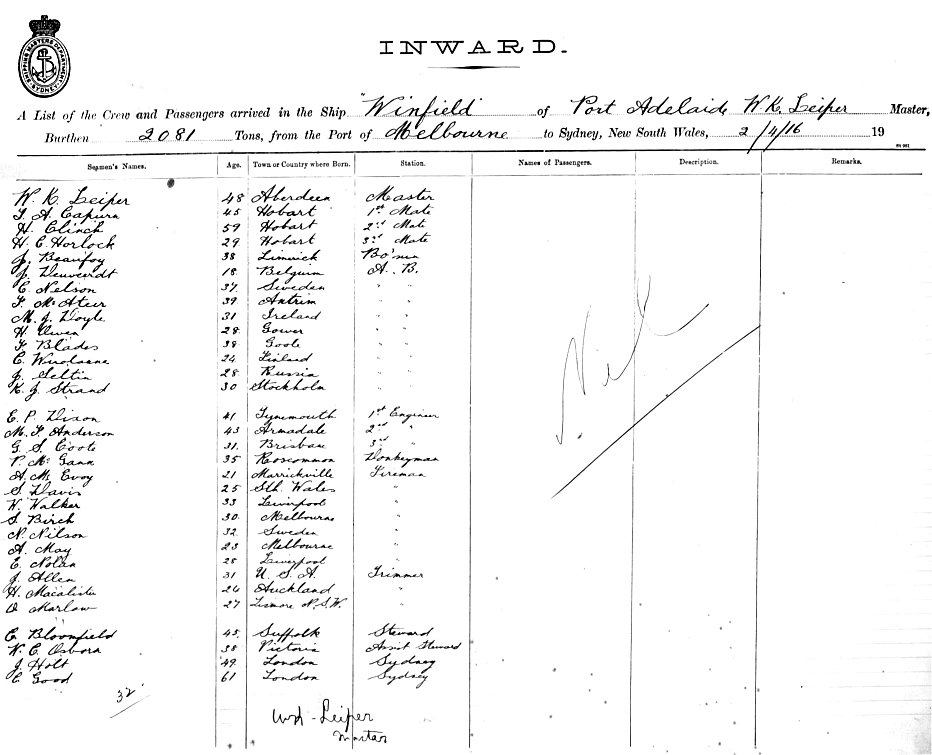 SHIPPING MASTERS DEPARTMENT SYDNEY
INWARD.
A List of the Crew and Passengers arrived in the Ship "Winfield" of Port Adelaide W. K. Leiper Master,
Burthen 2081 Tons, from the Port of Melbourne to Sydney, New South Wales, 2/4/16 19
Seamen's Names. Age. Town or Country where Born. Station. Names of Passengers. Description. Remarks.
W. K. Leiper 48 Aberdeen Master
T. A. Capurn 45 Hobart 1st Mate
H. Clinch 59 Hobart 2nd Mate
H. C. Horlock 29 Hobart 3rd Mate
J. Beaufoy 38 Limrick Bo'sun
J. 18 Belguim A. B.
C. Nelson 37 Sweden " "
F. McAteer 39 Antrim " "
M. J. Doyle 31 Ireland " "
H. Owen 28 Gower " "
F. Blades 38 Goole " "
C. 24 Finland " "
J. Seltin 28 Russia " "
K. J. Strand 30 Stockholm " "
Nil
E. P. Dixon 41 Tynemouth 1st Engineer
M. F. Anderson 43 Armadale 2nd "
G. S. Coote 31 Brisbane 3rd "
P. McGann 35 Roscommon Donkeyman
A. McEvoy 21 Marrickville Fireman
S. Davis 25 Sth. Wales "
W. Walker 33 Liverpool "
S. Birch 30 Melbourne "
N. Nilson 32 Sweden "
A. May 23 Melbourne "
E. Nolan 28 Liverpool "
J. Allen 31 U. S. A. Trimmer
H. Macalister 26 Auckland "
O Marlow 27 Lismore N.S.W. "
E. Bloomfield 45 Suffolk Steward
W. E. Osborn 38 Victoria Assit Steward
J. Holt 49 London Sydney
C. Good 61 London Sydney
32
WK Leiper
Master